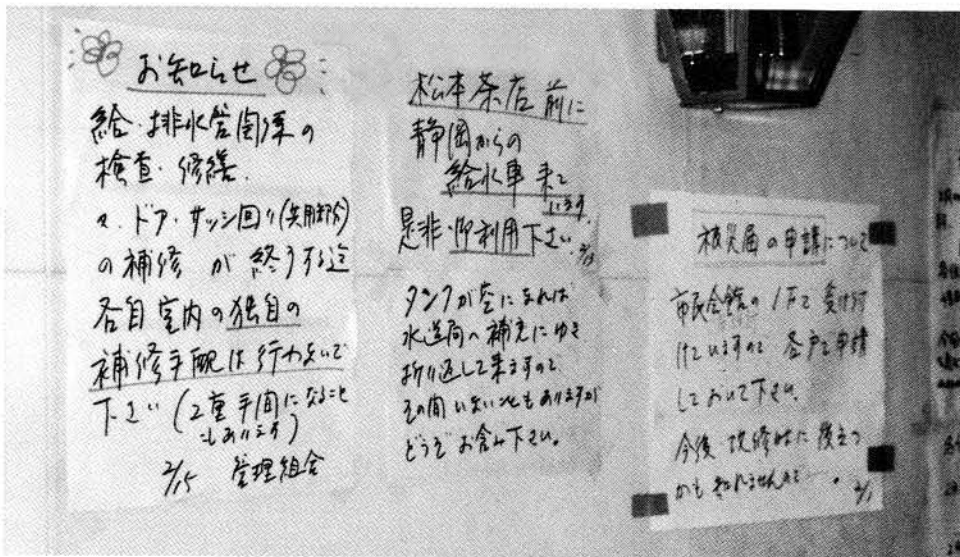 お知らせ
給・排水管関係の
検査・修繕.
又、ドア・サッシ回り(共用部分)
の補修 が 終了する迄
各自室内の独自の
補修手配は行わないで
下さい(2重手間になること
もあります)
2/15 管理組合
松本茶店 前に
静岡からの
給水車 来て
います.
是非・御利用下さい. 2/13
タンクが空になれば
水道局へ補充にゆき
折り返して来ますので
その間いないこともありますが
どうぞお含み下さい。
被災届の申請について
市民会館の1Fで受け付
けていますので 各戸で申請
しておいて下さい.
今後 改修時に役立つ
かも知れませんので・・・. 2/1